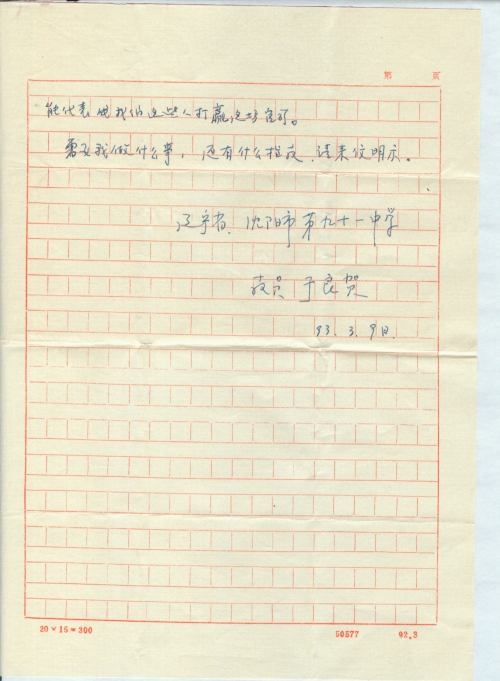 第 页
能代表咱我们这些人打赢这场官司。
需要我做什么事，还有什么程度，请来信明示。
辽宁省、沈阳市第九十一中学
教员 于良贺
93.3.9日.
20×15=300 50577 92.3